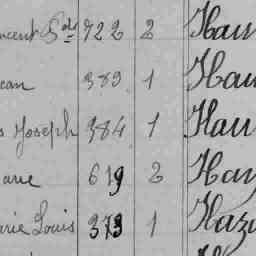 ncent Sdt 722 2 Hau
ean 383 1 Hau
s Joseph 384 1 Hau
arie 619 2 Hay
arie Louis 373 1 Haz